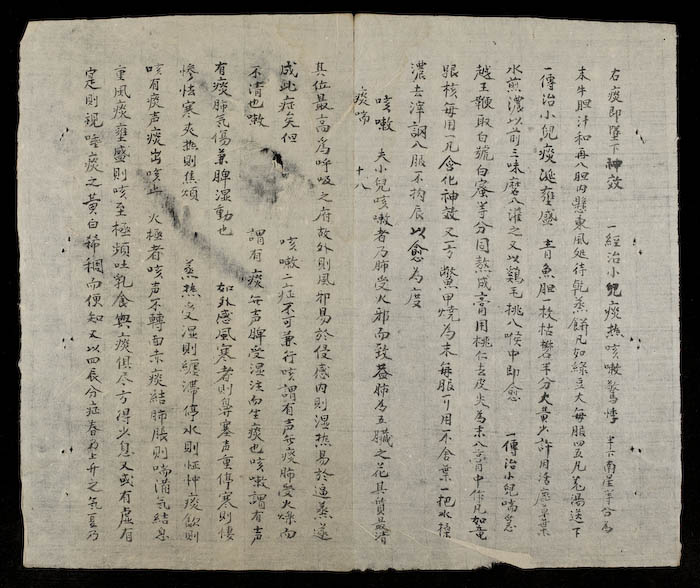 右痰即墜下神效 一經治小兒痰热咳嗽驚悸 半下南星等分爲
末牛胆汁和再入胆内懸東風処待乾蒸餅凡如綠豆大每服四五凡姜湯送下
一傳治小兒痰涎壅盛 青魚胆一枚枯礬半分大黄少許用
水煎濃以前三味磨入灌之又以鷄毛挑入喉中即愈 一傳治小兒喘急
越王鞭取白號白蜜等分同熬成膏用桃仁去皮尖爲末入膏中作凡如竜
眼核每用一凡含化神效又一方鱉甲燒为末每服一刀用不食葉一把水煙
濃去滓調入服不拘辰以愈为度
咳嗽 夫小兒咳嗽者乃肺受火邪而致益肺为五臓之花其質最清
痰喘 十八
其位最高爲呼吸之府故外則風邪易於侵感内則湿热易於逼蒸遂
成此症矣但 咳嗽二症不可兼行咳謂有声無痰肺受火燥而
不清也嗽 謂有痰無声脾受湿注而生痰也咳嗽謂有声
有痰肺氣傷兼脾湿動也 如外感風寒者則鼻塞声重停寒則悽
慘怯寒夾热則焦煩 蒸热受湿則纏滯停水則怔忡痰飲則
咳有痰声痰出咳止 火極者咳声不轉面赤痰結肺脹則喘滿氣結息
重風痰壅盛則咳至極頻吐乳食與痰俱尽方得少息又或有虛有
寔則視唾痰之黄白稀稠而便知又以四辰分症春为上升之氣夏乃